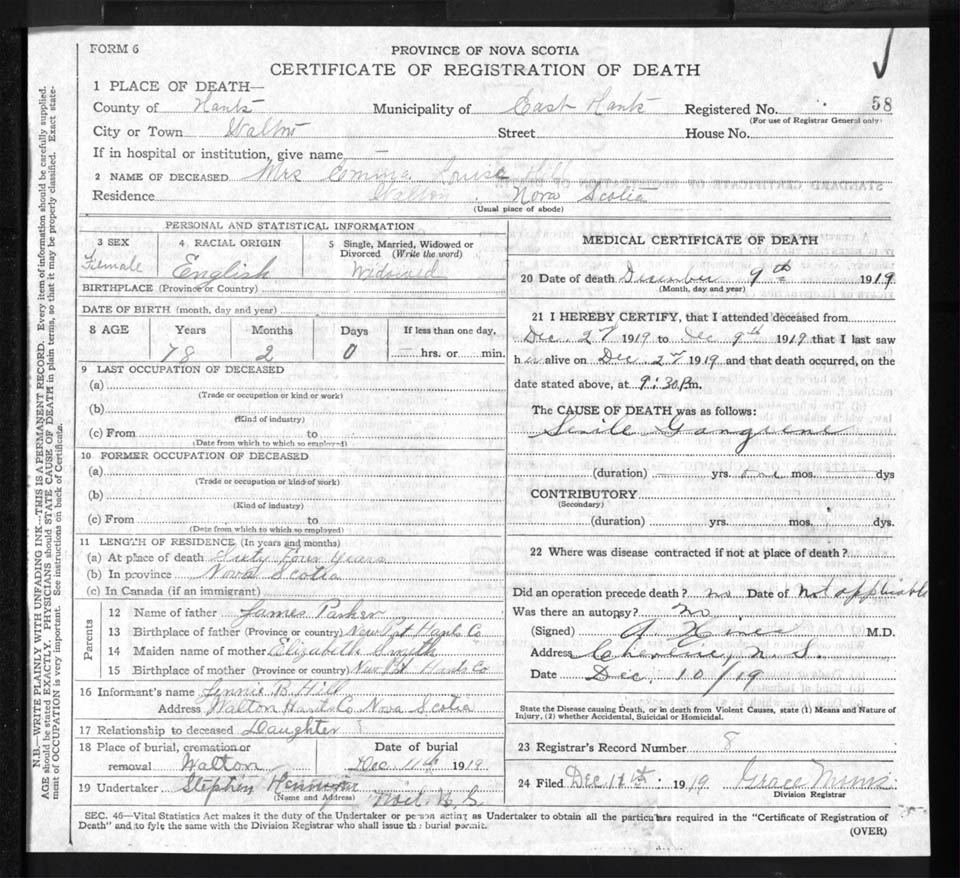 FORM 6
PROVINCE OF NOVA SCOTIA
CERTIFICATE OF REGISTRATION OF DEATH
1 PLACE OF DEATH—
County of Hants Municipality of East Hants Registered No. 58
(For use of Registrar General only)
City or Town Walton Street House No.
If in hospital or institution, give name —
2 NAME OF DECEASED Mrs Louise Hill
Residence Walton Nova Scotia
(Usual place of abode)
PERSONAL AND STATISTICAL INFORMATION
3 SEX Female
4 RACIAL ORIGIN English
5 Single, Married, Widowed or Divorced (Write the word) Widowed
BIRTHPLACE (Province or Country)
DATE OF BIRTH (month, day and year)
8 AGE Years Months Days If less than one day,
78 2 0 — hrs. or min.
9 LAST OCCUPATION OF DECEASED
(a)
(Trade or occupation or kind or work)
(b)
(Kind of industry)
(c) From to
(Date from which to which so employed)
10 FORMER OCCUPATION OF DECEASED
(a)
(Trade or occupation or kind of work)
(b)
(Kind of industry)
(c) From to
(Date from which to which so employed)
11 LENGTH OF RESIDENCE (In years and months)
(a) At place of death Sixty Four Years
(b) In province Nova Scotia
(c) In Canada (if an immigrant)
Parents
12 Name of father James Parker
13 Birthplace of father (Province or country) New Pt Hants Co
14 Maiden name of mother Elizabeth Smith
15 Birthplace of mother (Province or country) New Pt Hants Co
16 Informant's name Jennie B. Hill
Address Walton Hants Co Nova Scotia
17 Relationship to deceased Daughter
18 Place of burial, cremation or removal Walton
Date of burial Dec 11th 1919
19 Undertaker Stephen
(Name and Address) Noel N. S.
MEDICAL CERTIFICATE OF DEATH
20 Date of death December 9th 1919
(Month, day and year)
21 I HEREBY CERTIFY, that I attended deceased from
Dec 2d 1919 to Dec 9th 1919 that I last saw
h er alive on Dec 2d 1919 and that death occurred, on the
date stated above, at 9:30 Pm.
The CAUSE OF DEATH was as follows:
Senile Gangrene
(duration) — yrs. one mos. dys
CONTRIBUTORY
(Secondary)
(duration) yrs. mos. dys.
22 Where was disease contracted if not at place of death?
Did an operation precede death? no Date of Not applicable
Was there an autopsy? No
(Signed) A. Hines M.D.
Address Cheverie, N. S.
Date Dec. 10/19
State the Disease causing Death, or in death from Violent Causes, state (1) Means and Nature of
Injury, (2) whether Accidental, Suicidal or Homicidal.
23 Registrar's Record Number 8
24 Filed Dec 12th 1919 Grace
Division Registrar
SEC. 46—Vital Statistics Act makes it the duty of the Undertaker or person acting as Undertaker to obtain all the particulars required in the "Certificate of Registration of
Death" and to fyle the same with the Division Registrar who shall issue the burial permit.
(OVER)
N.B.—WRITE PLAINLY WITH UNFADING INK—THIS IS A PERMANENT RECORD. Every item of information should be carefully supplied.
AGE should be stated EXACTLY. PHYSICIANS should STATE CAUSE OF DEATH in plain terms, so that it may be properly classified. Exact state-
ment of OCCUPATION is very important. See instructions on back of Certificate.